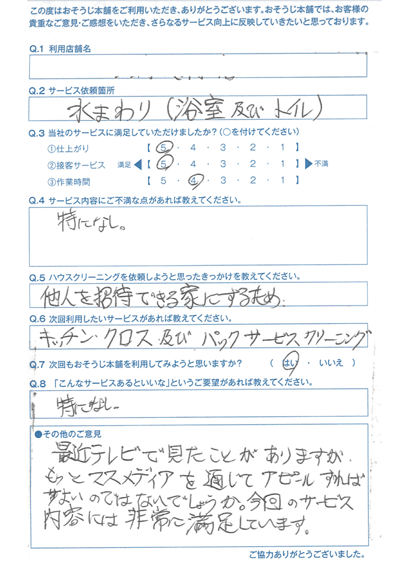 この度はおそうじ本舗をご利用いただき、ありがとうございます。おそうじ本舗では、お客様の
貴重なご意見・ご感想をいただき、さらなるサービス向上に反映していきたいと思っております。
Q.1 利用店舗名
Q.2 サービス依頼箇所
水まわり(浴室及びトイレ)
Q.3 当社のサービスに満足していただけましたか?(○を付けてください)
①仕上がり 【 5 ・ 4 ・ 3 ・ 2 ・ 1 】
②接客サービス 満足 ◀【 5 ・ 4 ・ 3 ・ 2 ・ 1 】▶ 不満
③作業時間 【 5 ・ 4 ・ 3 ・ 2 ・ 1 】
Q.4 サービス内容にご不満な点があれば教えてください。
特になし。
Q.5 ハウスクリーニングを依頼しようと思ったきっかけを教えてください。
他人を招待できる家にするため.
Q.6 次回利用したいサービスがあれば教えてください。
キッチン・クロス及びパックサービスクリーニング
Q.7 次回もおそうじ本舗を利用してみようと思いますか? ( はい ・ いいえ )
Q.8 「こんなサービスあるといいな」というご要望があれば教えてください。
特になし
●その他のご意見
最近テレビで見たことがありますが.
もっとマスメディアを通じてアピールすれば
よいのではないでしょうか。今回のサービス
内容には非常に満足しています。
ご協力ありがとうございました。